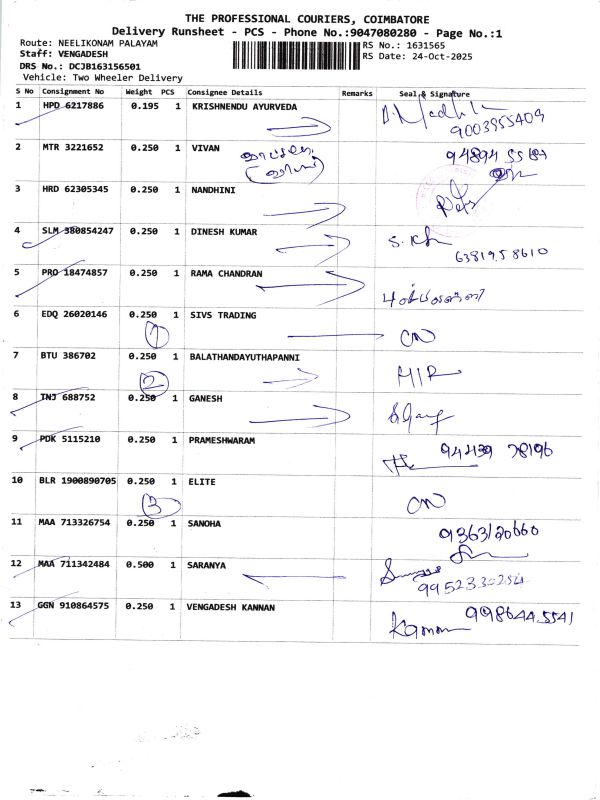 THE PROFESSIONAL COURIERS, COIMBATORE
Delivery Runsheet - PCS - Phone No.:9047080280 - Page No.:1
Route: NEELIKONAM PALAYAM
RS No.: 1631565
Staff: VENGADESH
RS Date: 24-Oct-2025
DRS No.: DCJB163156501
Vehicle: Two Wheeler Delivery
S No Consignment No Weight PCS Consignee Details Remarks Seal & Signature
1 HPD 6217886 0.195 1 KRISHNENDU AYURVEDA
9003955409
2 MTR 3221652 0.250 1 VIVAN
3 HRD 62305345 0.250 1 NANDHINI
4 SLM 380854247 0.250 1 DINESH KUMAR
6381958610
5 PRO 18474857 0.250 1 RAMA CHANDRAN
6 EDQ 26020146 0.250 1 SIVS TRADING
1 CN
7 BTU 386702 0.250 1 BALATHANDAYUTHAPANNI
2 MIR
8 TNJ 688752 0.250 1 GANESH
9 PDK 5115210 0.250 1 PRAMESHWARAM
94439 78196
10 BLR 1900890705 0.250 1 ELITE
3 CN
11 MAA 713326754 0.250 1 SANOHA
9363120660
12 MAA 711342484 0.500 1 SARANYA
9952330254
13 GGN 910864575 0.250 1 VENGADESH KANNAN
9986445541